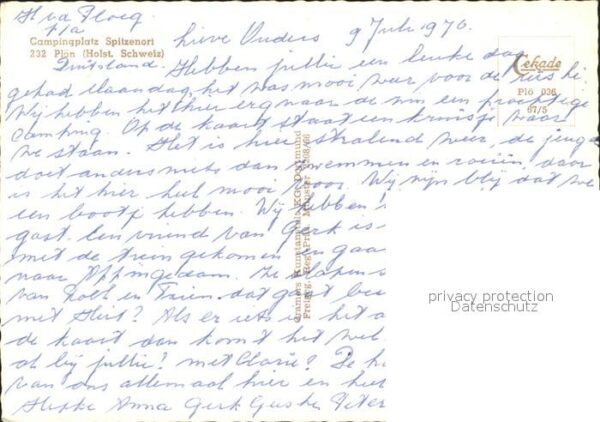 H v d Ploeg
p/a
Campingplatz Spitzenort
232 Plön (Holst. Schweiz)
Duitsland.
Lieve Ouders 9 Juli 1970.
Hebben jullie een leuke dag
gehad Maandag, het was mooi weer voor de reis he
Wij hebben het hier erg naar de zin een prachtige
camping. Op de kaart staat een kruisje waar
we staan. Het is hier stralend weer, de jeugd
doet anders niets dan zwemmen en roeien, daar
is het hier heel mooi voor. Wij zijn blij dat we
een bootje hebben. Wij hebben
gast. Een vriend van Gerk is
met de trein gekomen en gaa
naar Appingedam. Ze slapen
van Rolf en Trien, dat gaat bes
met Heit? Als er iets is het a
de kaart dan komt het wel
al bij jullie? met Clarie? De h
van ons allemaal hier en heel
Hepke Anna Gerk Peter
Cekade
Plö 036
67/5
Cramers Kunstanstalt KG, Dortmund
Freigg. Reg. Präs. Münster
privacy protection
Datenschutz